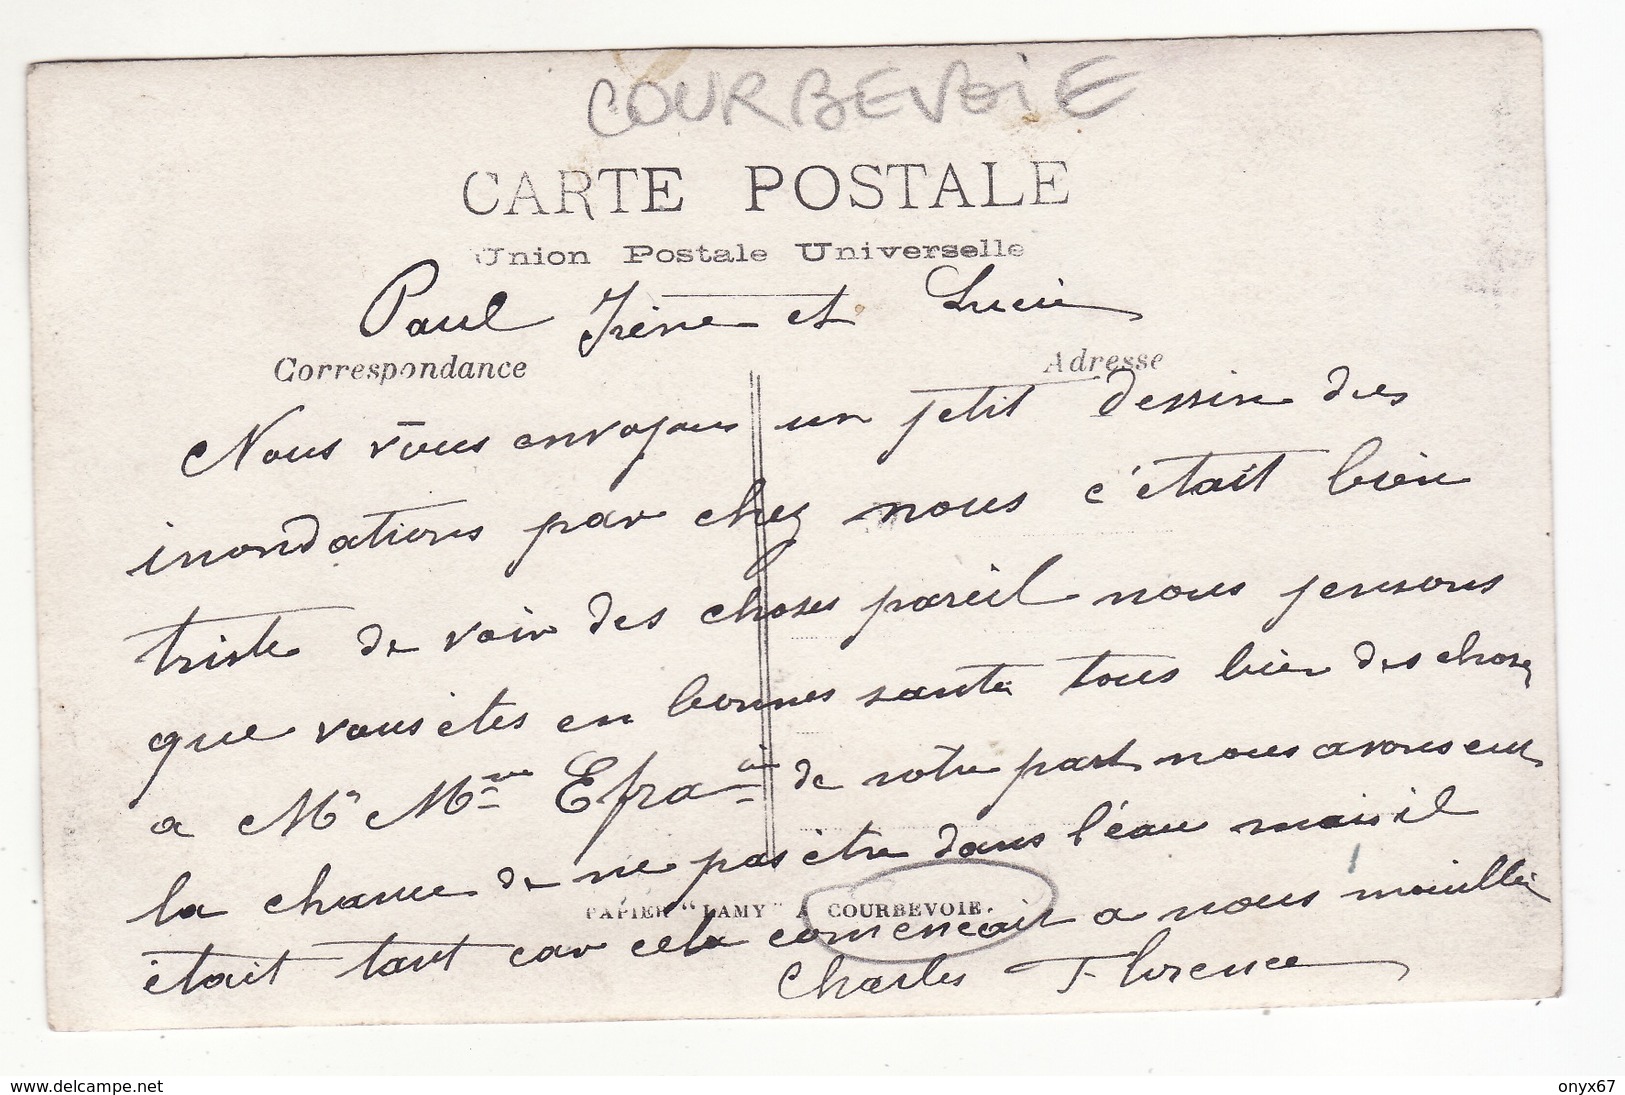 COURBEVOIE
CARTE POSTALE
Union Postale Universelle
Paul Irène et Lucien
Correspondance Adresse
Nous vous envoyons un petit dessin des
inondations par chez nous c'était bien
triste de voir des choses pareil nous pensons
que vous êtes en bonnes santé tous bien des choses
a Mr Mme de notre part nous avons eut
la chance de ne pas être dans l'eau mais il
PAPIER "LAMY" A COURBEVOIE.
était tant car cela comencait a nous mouillé
Charles Florence
www.delcampe.net
onyx67